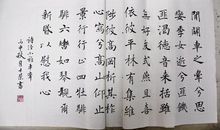 間關車之舝兮思
孌季女逝兮匪飢
匪渴德音來括
無好友式燕且喜
依彼平林有集
陟彼高岡析其
景行行止四牡騑
騑六轡如琴覯爾
新昏以慰我心
詩經小雅車舝
丙申秋月 書